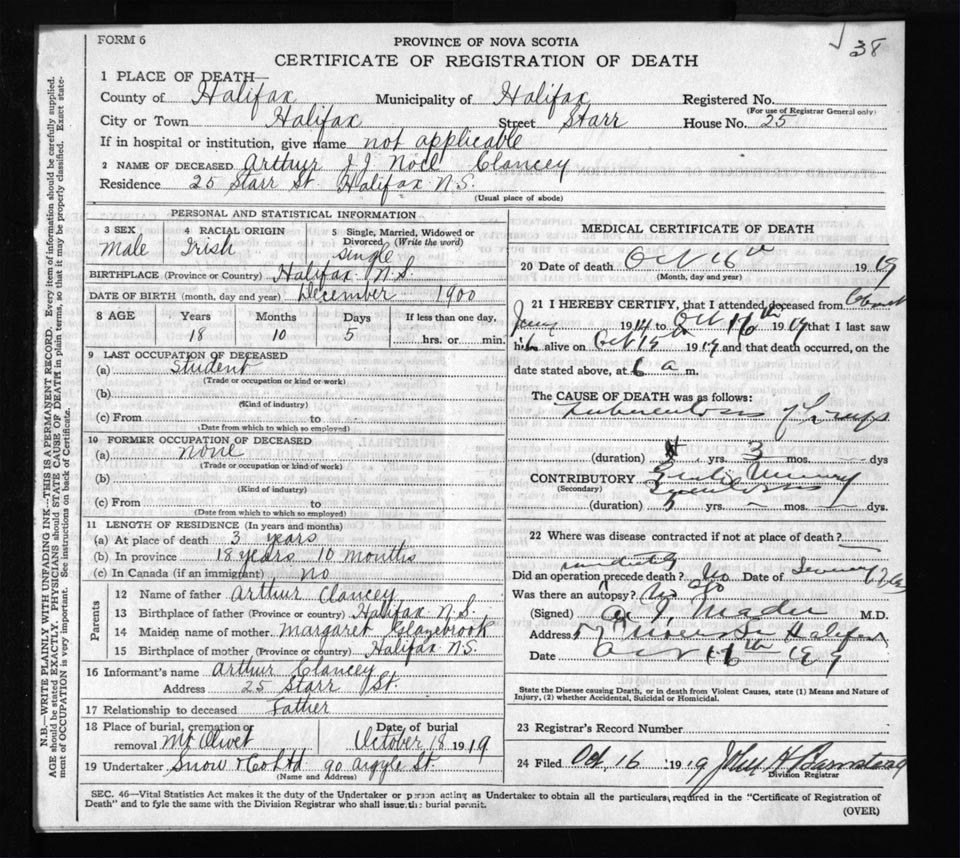 38
FORM 6
PROVINCE OF NOVA SCOTIA
CERTIFICATE OF REGISTRATION OF DEATH
1 PLACE OF DEATH—
County of Halifax Municipality of Halifax Registered No.
(For use of Registrar General only)
City or Town Halifax Street Starr House No. 25
If in hospital or institution, give name not applicable
2 NAME OF DECEASED Arthur J. J. Noel Clancey
Residence 25 Starr St. Halifax N.S.
(Usual place of abode)
PERSONAL AND STATISTICAL INFORMATION
3 SEX 4 RACIAL ORIGIN 5 Single, Married, Widowed or
Divorced (Write the word)
Male Irish Single
BIRTHPLACE (Province or Country) Halifax N.S.
DATE OF BIRTH (month, day and year) December 1900
8 AGE Years Months Days If less than one day,
18 10 5 hrs. or min.
9 LAST OCCUPATION OF DECEASED
(a) Student
(Trade or occupation or kind or work)
(b)
(Kind of industry)
(c) From to
(Date from which to which so employed)
10 FORMER OCCUPATION OF DECEASED
(a) none
(Trade or occupation or kind of work)
(b)
(Kind of industry)
(c) From to
(Date from which to which so employed)
11 LENGTH OF RESIDENCE (In years and months)
(a) At place of death 3 years
(b) In province 18 years 10 months
(c) In Canada (if an immigrant) no
Parents
12 Name of father Arthur Clancey
13 Birthplace of father (Province or country) Halifax N.S.
14 Maiden name of mother Margaret Glazebrook
15 Birthplace of mother (Province or country) Halifax N.S.
16 Informant's name Arthur Clancey
Address 25 Starr St.
17 Relationship to deceased Father
18 Place of burial, cremation or Date of burial
removal Mt Olivet October 18 1919
19 Undertaker Snow & Co Ltd 90 Argyle St.
(Name and Address)
MEDICAL CERTIFICATE OF DEATH
20 Date of death Oct 16 1919
(Month, day and year)
21 I HEREBY CERTIFY, that I attended deceased from
1914 to Oct 16th 1919 that I last saw
alive on Oct 15 1919 and that death occurred, on the
date stated above, at 6 a m.
The CAUSE OF DEATH was as follows:
Tuberculosis of Lungs
(duration) yrs. 3 mos. dys
CONTRIBUTORY
(Secondary)
(duration) yrs. mos. dys.
22 Where was disease contracted if not at place of death?
Did an operation precede death? Date of
Was there an autopsy? No
(Signed) Mader M.D.
Address Halifax
Date Oct 16th 1919
State the Disease causing Death, or in death from Violent Causes, state (1) Means and Nature of
Injury, (2) whether Accidental, Suicidal or Homicidal.
23 Registrar's Record Number
24 Filed Oct 16 1919
Division Registrar
SEC. 46—Vital Statistics Act makes it the duty of the Undertaker or person acting as Undertaker to obtain all the particulars required in the "Certificate of Registration of
Death" and to fyle the same with the Division Registrar who shall issue the burial permit.
(OVER)
N.B.—WRITE PLAINLY WITH UNFADING INK—THIS IS A PERMANENT RECORD. Every item of information should be carefully supplied.
AGE should be stated EXACTLY. PHYSICIANS should STATE CAUSE OF DEATH in plain terms, so that it may be properly classified. Exact state-
ment of OCCUPATION is very important. See instructions on back of Certificate.